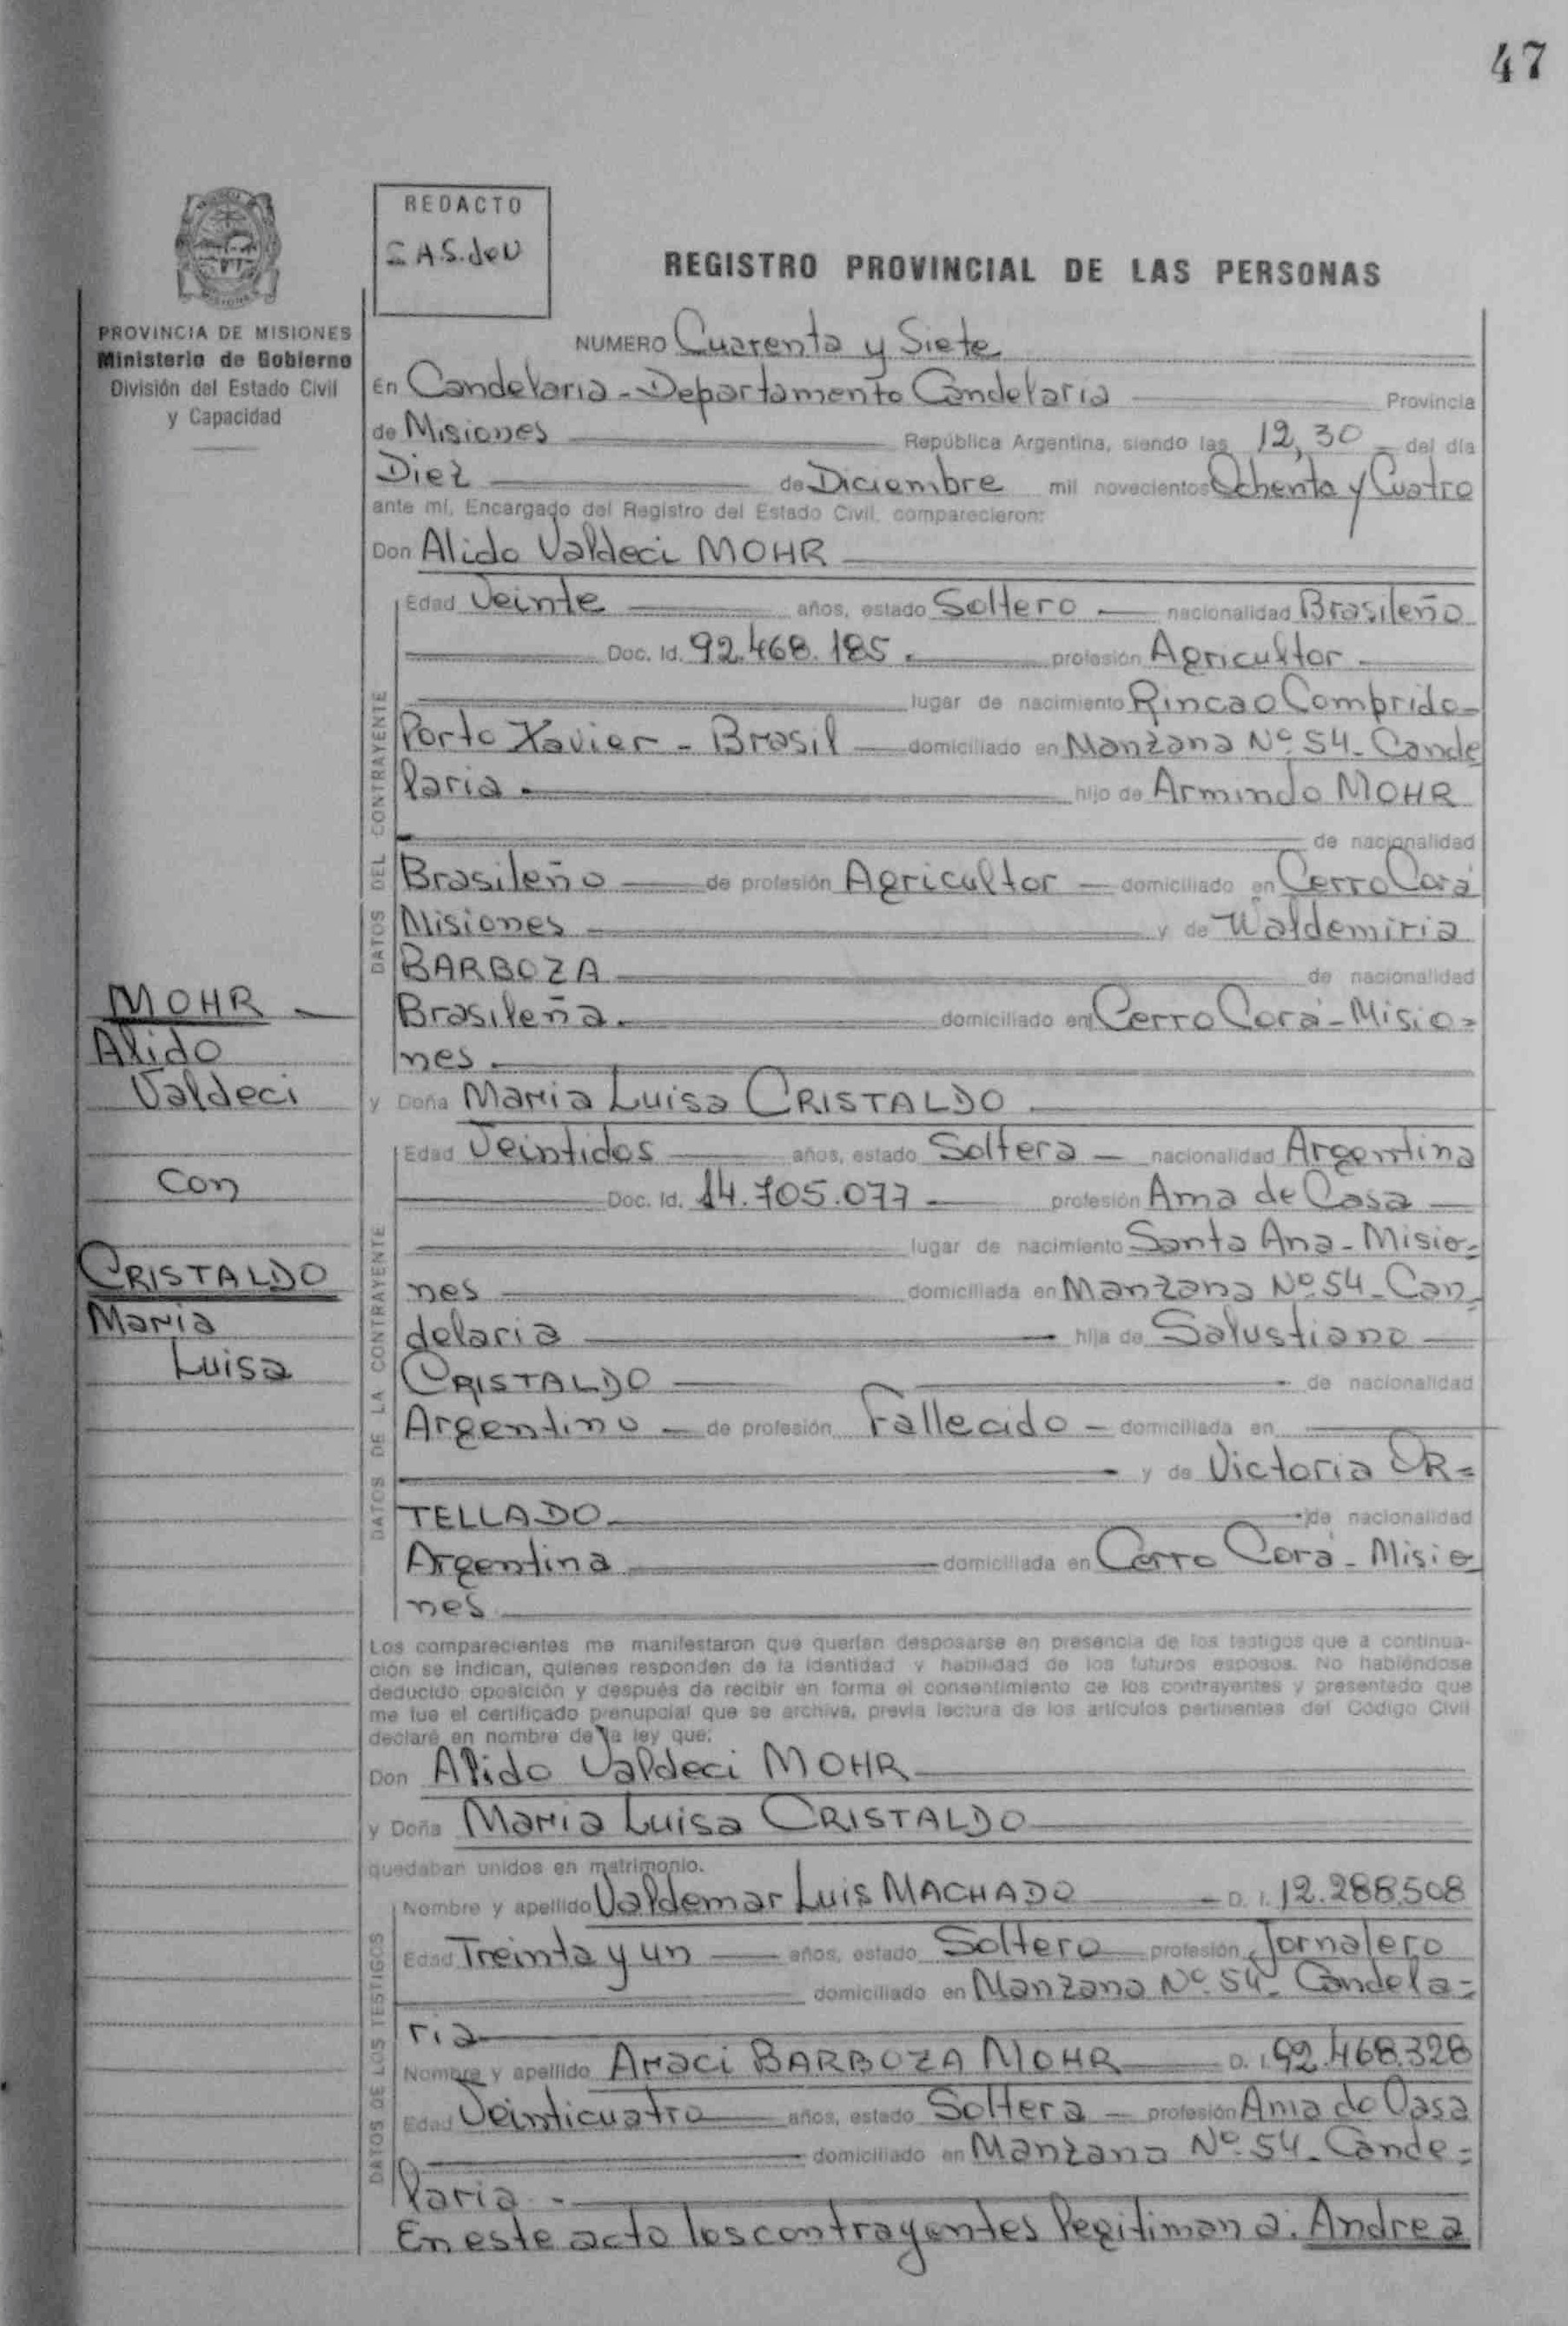 47
REDACTO
S.A.S.deN
REGISTRO PROVINCIAL DE LAS PERSONAS
PROVINCIA DE MISIONES
Ministerio de Gobierno
División del Estado Civil
y Capacidad
NUMERO Cuarenta y Siete
En Candelaria - Departamento Candelaria Provincia
de Misiones República Argentina, siendo las 12,30 del día
Diez de Diciembre mil novecientos Ochenta y Cuatro
ante mí, Encargado del Registro del Estado Civil, comparecieron:
Don Alido Valdeci MOHR
DATOS DEL CONTRAYENTE
Edad Veinte años, estado Soltero nacionalidad Brasileño
Doc. Id. 92.468.185. profesión Agricultor
lugar de nacimiento Rincao Comprido-
Porto Xavier - Brasil domiciliado en Manzana Nº 54- Cande
laria. hijo de Armindo MOHR
de nacionalidad
Brasileño de profesión Agricultor domiciliado en Cerro Corá
Misiones y de Waldemiria
BARBOZA de nacionalidad
Brasileña. domiciliado en Cerro Corá - Misio=
nes.
y Doña Maria Luisa CRISTALDO
DATOS DE LA CONTRAYENTE
Edad Veintidos años, estado Soltera nacionalidad Argentina
Doc. Id. 14.705.077 profesión Ama de Casa
lugar de nacimiento Santa Ana - Misio=
nes domiciliada en Manzana Nº 54 - Can=
delaria hija de Salustiano
CRISTALDO de nacionalidad
Argentino de profesión Fallecido domiciliada en
y de Victoria OR=
TELLADO de nacionalidad
Argentina domiciliada en Cerro Corá - Misio
nes
Los comparecientes me manifestaron que querían desposarse en presencia de los testigos que a continua-
ción se indican, quienes responden de la identidad y habilidad de los futuros esposos. No habiéndose
deducido oposición y después de recibir en forma el consentimiento de los contrayentes y presentado que
me fue el certificado prenupcial que se archiva, previa lectura de los artículos pertinentes del Código Civil
declaré en nombre de la ley que:
Don Alido Valdeci MOHR
y Doña Maria Luisa CRISTALDO
quedaban unidos en matrimonio.
DATOS DE LOS TESTIGOS
Nombre y apellido Valdemar Luis MACHADO D. I. 12.288.508
Edad Treinta y un años, estado Soltero profesión Jornalero
domiciliado en Manzana Nº 54 - Candela=
ria
Nombre y apellido Araci BARBOZA MOHR D. I. 92.468.328
Edad Veinticuatro años, estado Soltera profesión Ama de Casa
domiciliado en Manzana Nº 54 - Cande=
laria -
En este acto los contrayentes legitiman a: Andrea
MOHR
Alido
Valdeci
con
CRISTALDO
Maria
Luisa